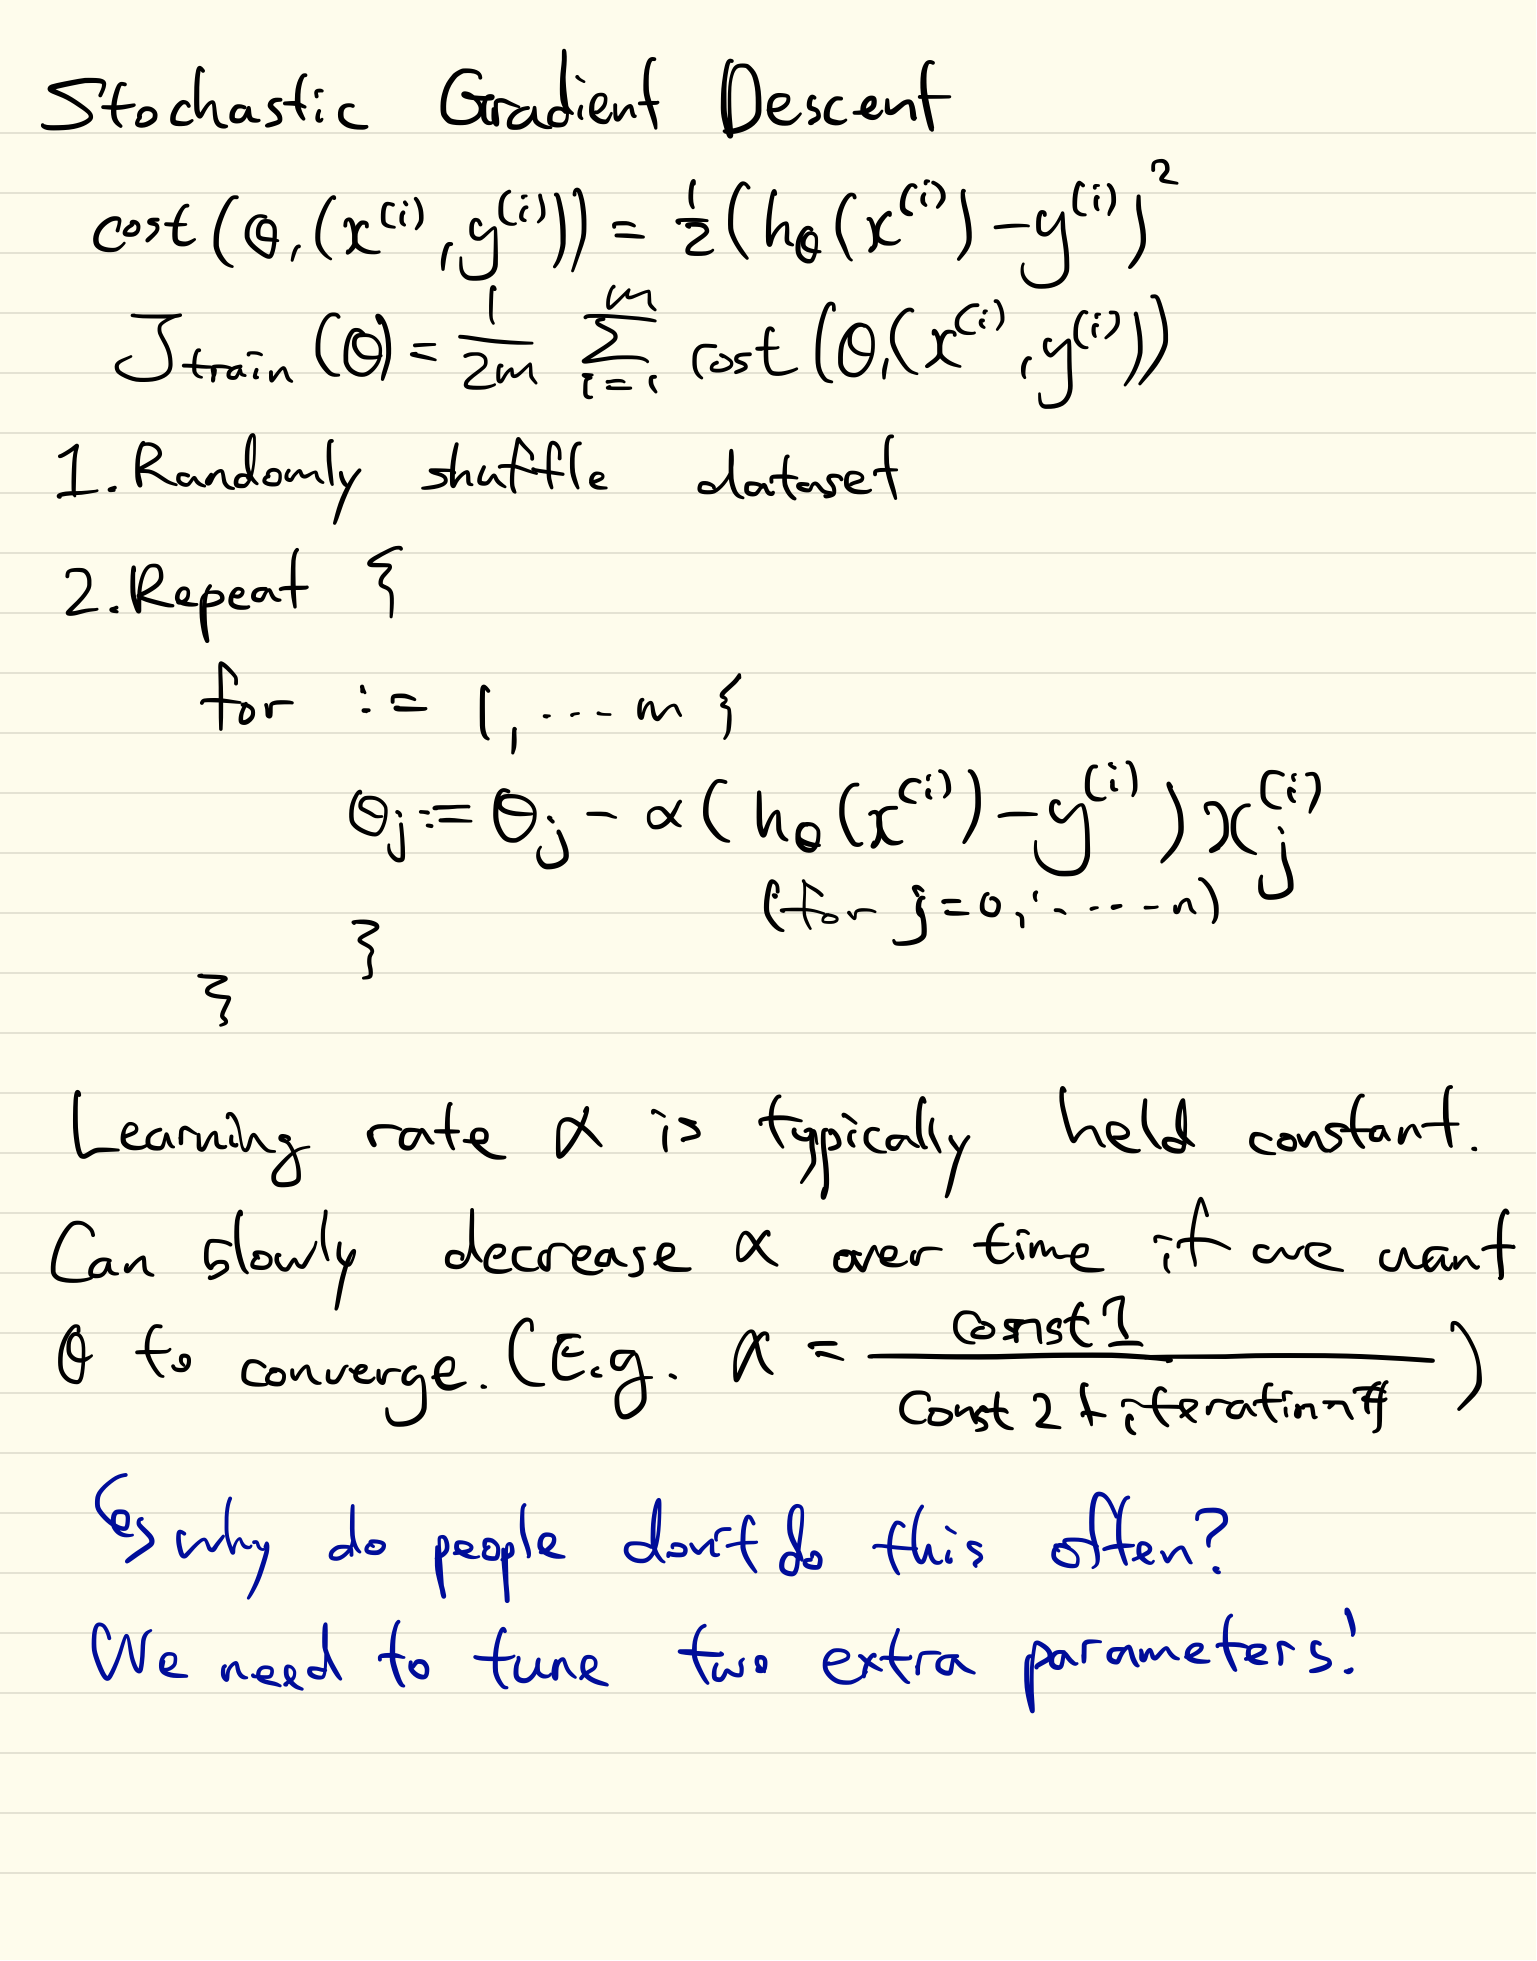 Stochastic Gradient Descent
cost(θ,(x^(i),y^(i))) = 1/2 (h_θ(x^(i)) - y^(i))^2
J_train(θ) = 1/2m Σ_{i=1}^{m} cost(θ,(x^(i),y^(i)))
1. Randomly shuffle dataset
2. Repeat {
for := 1,...m {
θ_j := θ_j - α(h_θ(x^(i)) - y^(i)) x_j^(i)
(for j=0,.....n)
}
}
Learning rate α is typically held constant.
Can slowly decrease α over time if we want
θ to converge. (E.g. α = const1 / const2 + iteration#)
↳ why do people don't do this often?
We need to tune two extra parameters!